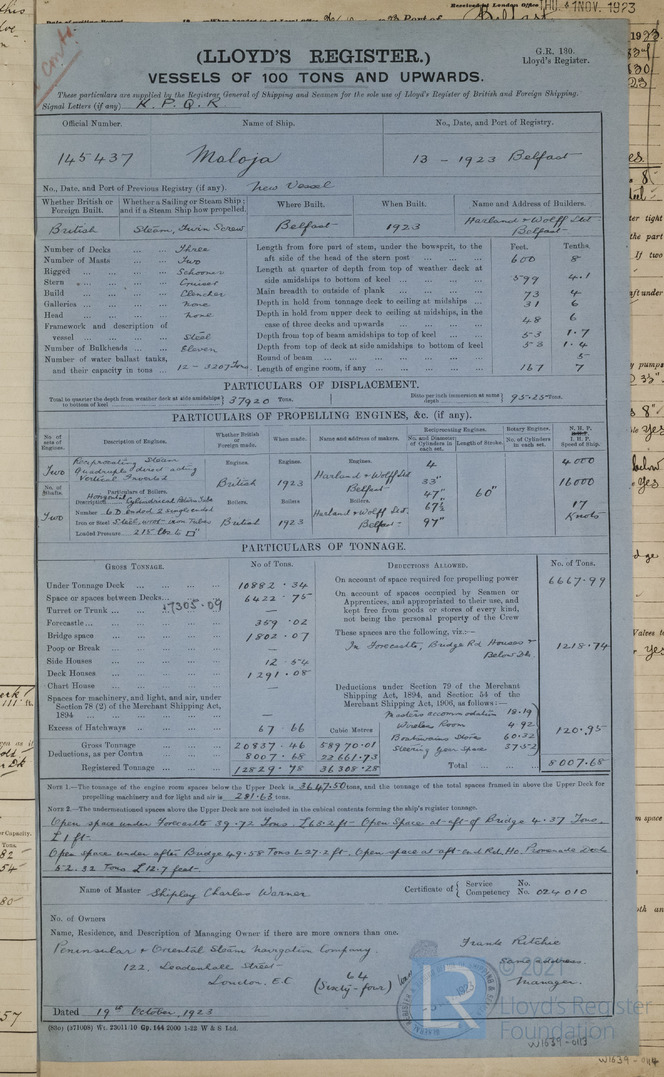 Received at London Office THU. 1 NOV. 1923
Port of Belfast
(LLOYD'S REGISTER.)
G.R. 130.
Lloyd's Register.
VESSELS OF 100 TONS AND UPWARDS.
These particulars are supplied by the Registrar General of Shipping and Seamen for the sole use of Lloyd's Register of British and Foreign Shipping.
Signal Letters (if any) K. P. Q. R
Official Number. Name of Ship. No., Date, and Port of Registry.
145437 Maloja 13 - 1923 Belfast
No., Date, and Port of Previous Registry (if any). New Vessel
Whether British or Foreign Built. Whether a Sailing or Steam Ship; and if a Steam Ship how propelled. Where Built. When Built. Name and Address of Builders.
British Steam, Twin Screw Belfast 1923 Harland & Wolff Ltd Belfast
Number of Decks Three
Number of Masts Two
Rigged Schooner
Stern Cruiser
Build Clencher
Galleries None
Head None
Framework and description of vessel Steel
Number of Bulkheads Eleven
Number of water ballast tanks, and their capacity in tons 12 - 3207 Tons
Feet. Tenths.
Length from fore part of stem, under the bowsprit, to the aft side of the head of the stern post 600 8
Length at quarter of depth from top of weather deck at side amidships to bottom of keel 599 4.1
Main breadth to outside of plank 73 4
Depth in hold from tonnage deck to ceiling at midships 31 6
Depth in hold from upper deck to ceiling at midships, in the case of three decks and upwards 48 6
Depth from top of beam amidships to top of keel 53 1.7
Depth from top of deck at side amidships to bottom of keel 53 1.4
Round of beam 5
Length of engine room, if any 167 7
PARTICULARS OF DISPLACEMENT.
Total to quarter the depth from weather deck at side amidships to bottom of keel 37920 Tons. Ditto per inch immersion at same depth 95.25 Tons.
PARTICULARS OF PROPELLING ENGINES, &c. (if any).
No. of sets of Engines. Description of Engines. Whether British or Foreign made. When made. Name and address of makers. Reciprocating Engines. No. and Diameter of Cylinders in each set. Length of Stroke. Rotary Engines. No. of Cylinders in each set. N.H.P. I.H.P. Speed of Ship.
Two Reciprocating Steam Quadruple direct acting Vertical Inverted
Engines. British Engines. 1923 Engines. Harland & Wolff Ltd Belfast
4 33" 47" 67½ 97" 60" 4000 16000 17 Knots
No. of Shafts. Particulars of Boilers.
Two Description Horizontal Cylindrical Return Tube
Number 6 D. ended 2 Single ended
Iron or Steel Steel, Iron Tubes
Loaded Pressure 215 lbs
Boilers. British Boilers. 1923 Boilers. Harland & Wolff Ltd. Belfast
PARTICULARS OF TONNAGE.
GROSS TONNAGE. No of Tons. DEDUCTIONS ALLOWED. No. of Tons.
Under Tonnage Deck 10882.34
Space or spaces between Decks 6422.75
Turret or Trunk 17305.09 —
Forecastle 359.02
Bridge space 1802.07
Poop or Break —
Side Houses 12.54
Deck Houses 1291.08
Chart House —
Spaces for machinery, and light, and air, under Section 78 (2) of the Merchant Shipping Act, 1894 —
Excess of Hatchways 67.66 Cubic Metres
Gross Tonnage 20837.46 58970.01
Deductions, as per Contra 8007.68 22661.73
Registered Tonnage 12829.78 36308.28
On account of space required for propelling power 6667.99
On account of spaces occupied by Seamen or Apprentices, and appropriated to their use, and kept free from goods or stores of every kind, not being the personal property of the Crew
These spaces are the following, viz.:—
In Forecastle, Bridge Rd Houses & Below Dk 1218.74
Deductions under Section 79 of the Merchant Shipping Act, 1894, and Section 54 of the Merchant Shipping Act, 1906, as follows:—
Masters accommodation 18.19
Wireless Room 4.92
Boatswains Store 60.32
Steering gear space 37.52
120.95
Total 8007.68
NOTE 1.—The tonnage of the engine room spaces below the Upper Deck is 3647.50 tons, and the tonnage of the total spaces framed in above the Upper Deck for propelling machinery and for light and air is 281.63 tons.
NOTE 2.—The undermentioned spaces above the Upper Deck are not included in the cubical contents forming the ship's register tonnage.
Open space under Forecastle 39.72 Tons L 65.2 ft Open Space at aft of Bridge 4.37 Tons.
L 1 ft.
Open space under after Bridge 49.58 Tons L 27.2 ft. Open space at aft end Rd. Ho. Promenade Deck
52.32 Tons L 12.7 feet.
Name of Master Shipley Charles Warner Certificate of Service No. Competency No. 024010
No. of Owners
Name, Residence, and Description of Managing Owner if there are more owners than one.
Peninsular & Oriental Steam Navigation Company.
122, Leadenhall Street
London, E.C
64
(Sixty-four)
Frank Ritchie
Same address.
Manager.
Dated 19th October, 1923
(830) (571008) Wt. 23011/10 Gp. 144 2000 1-22 W & S Ltd.
© 2021
LR
Lloyd's Register
Foundation
W1639-0113
W1639-0114